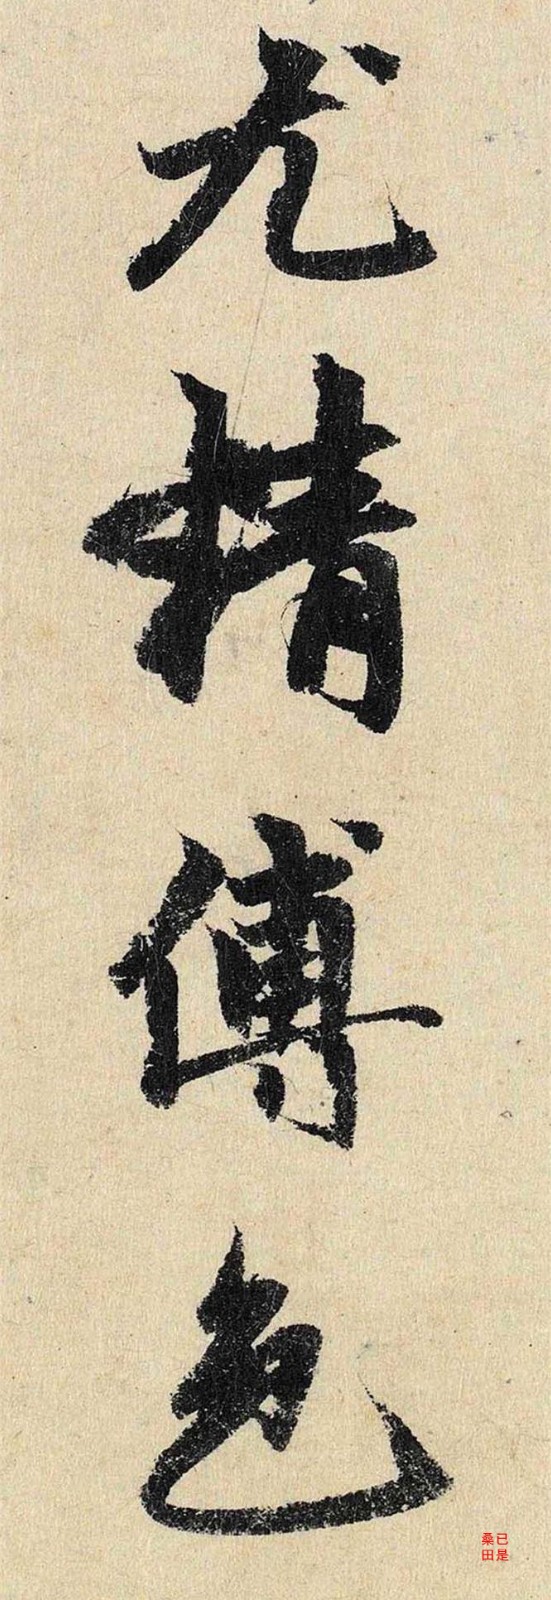 尤精傅色
已是
桑田